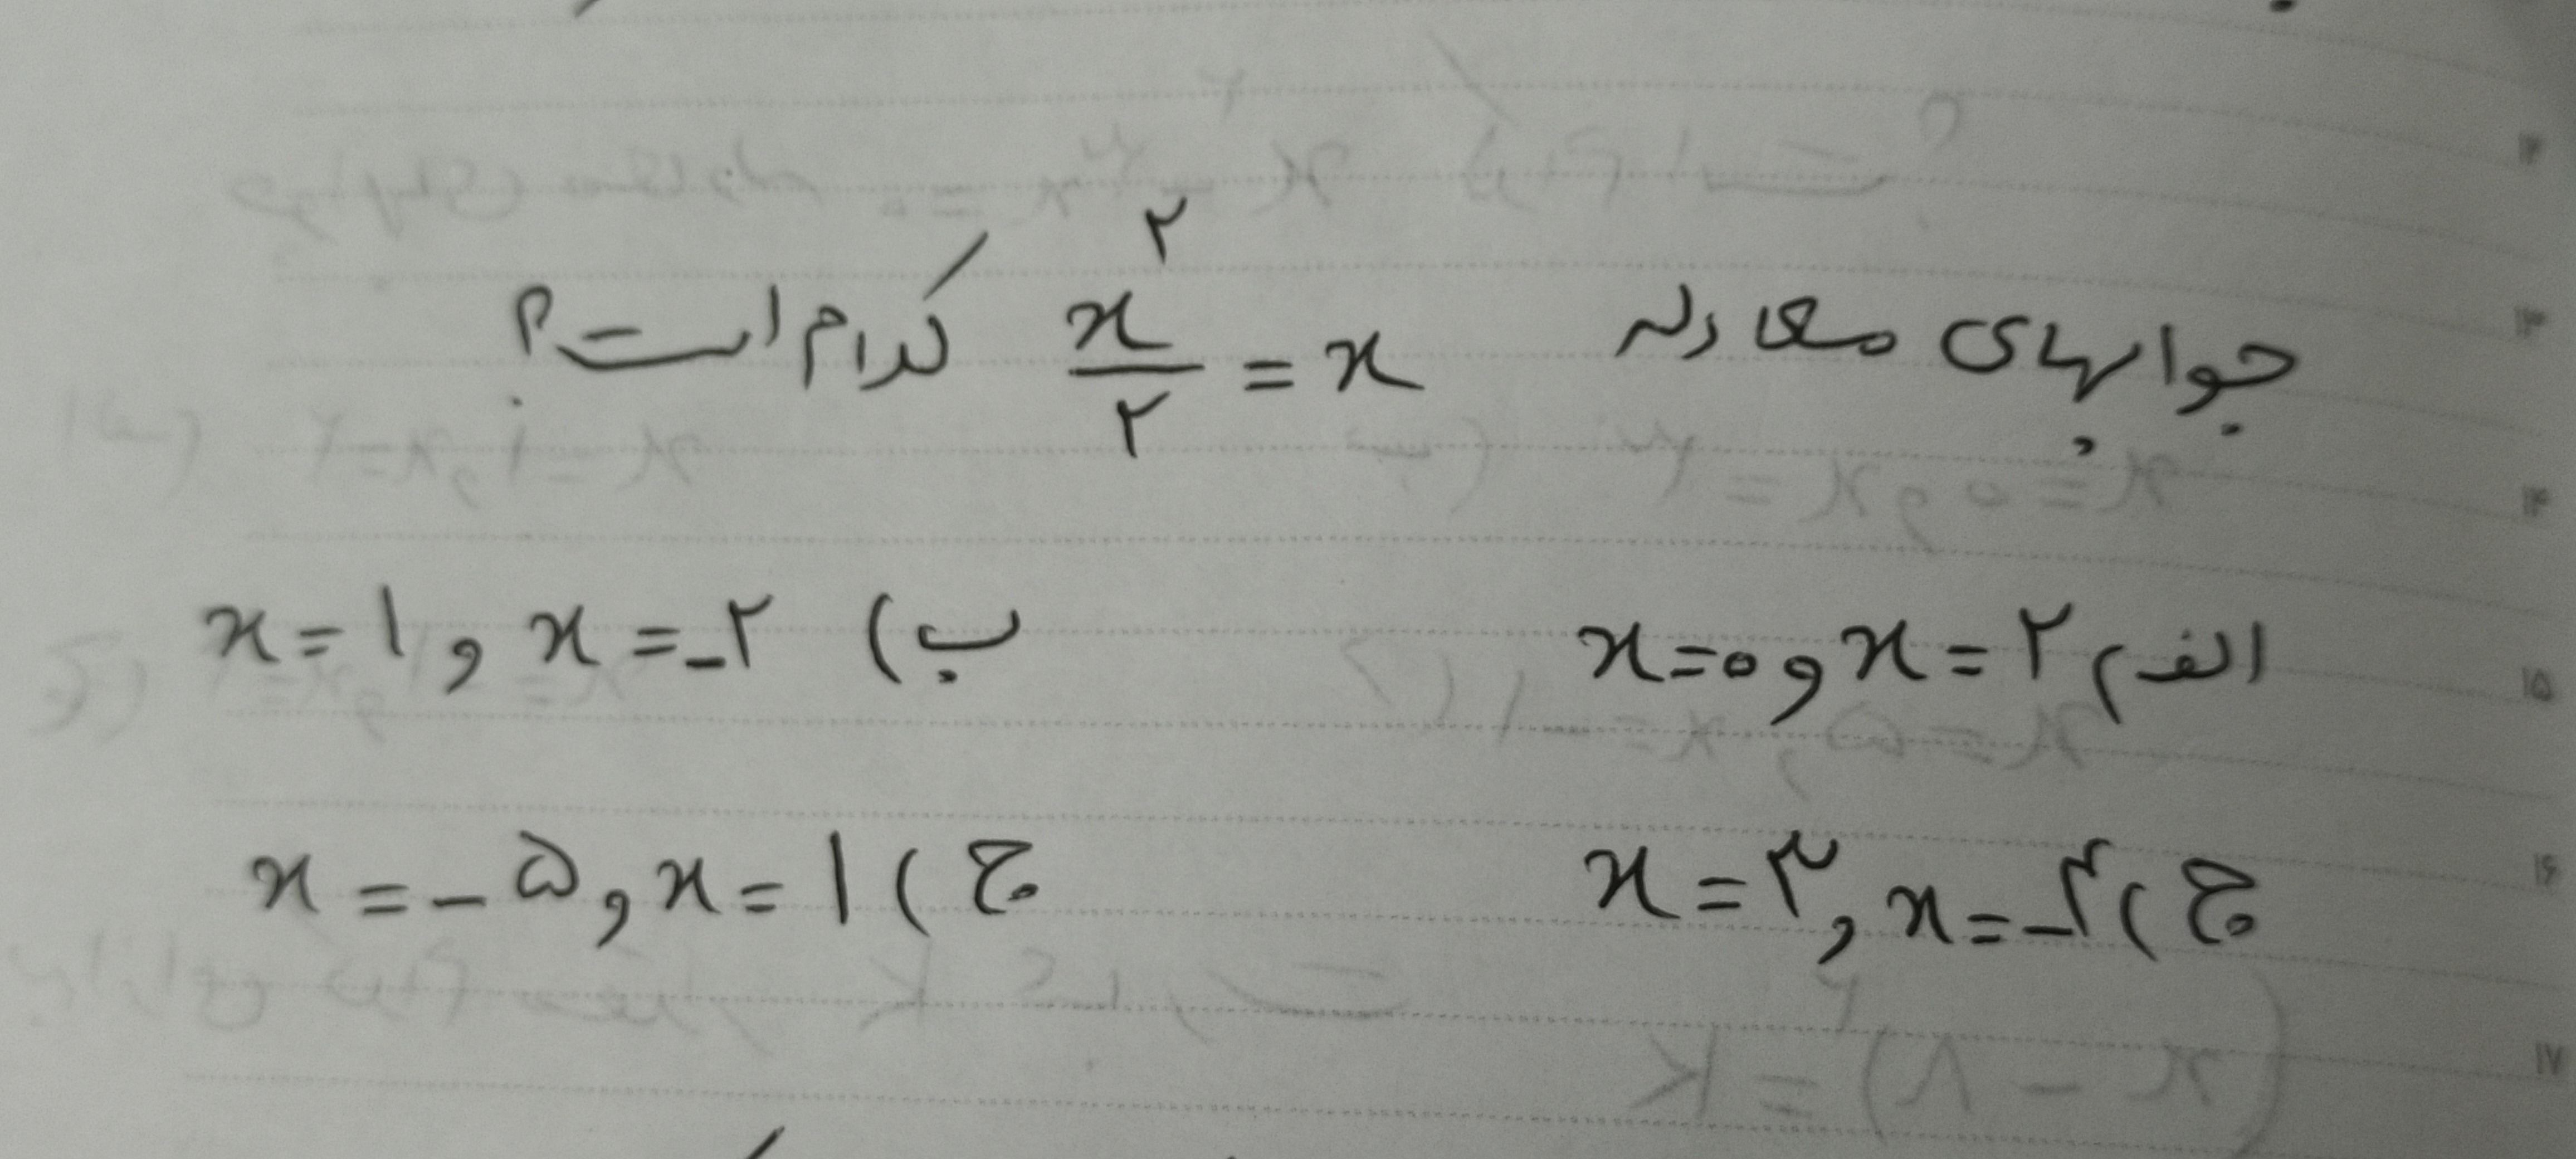 جوابهای معادله x²/۲ = x کدام است؟
الف) x=۰ و x=۲
ب) x=۱ و x=-۲
ج) x=۳ و x=-۴
ج) x=-۵ و x=۱